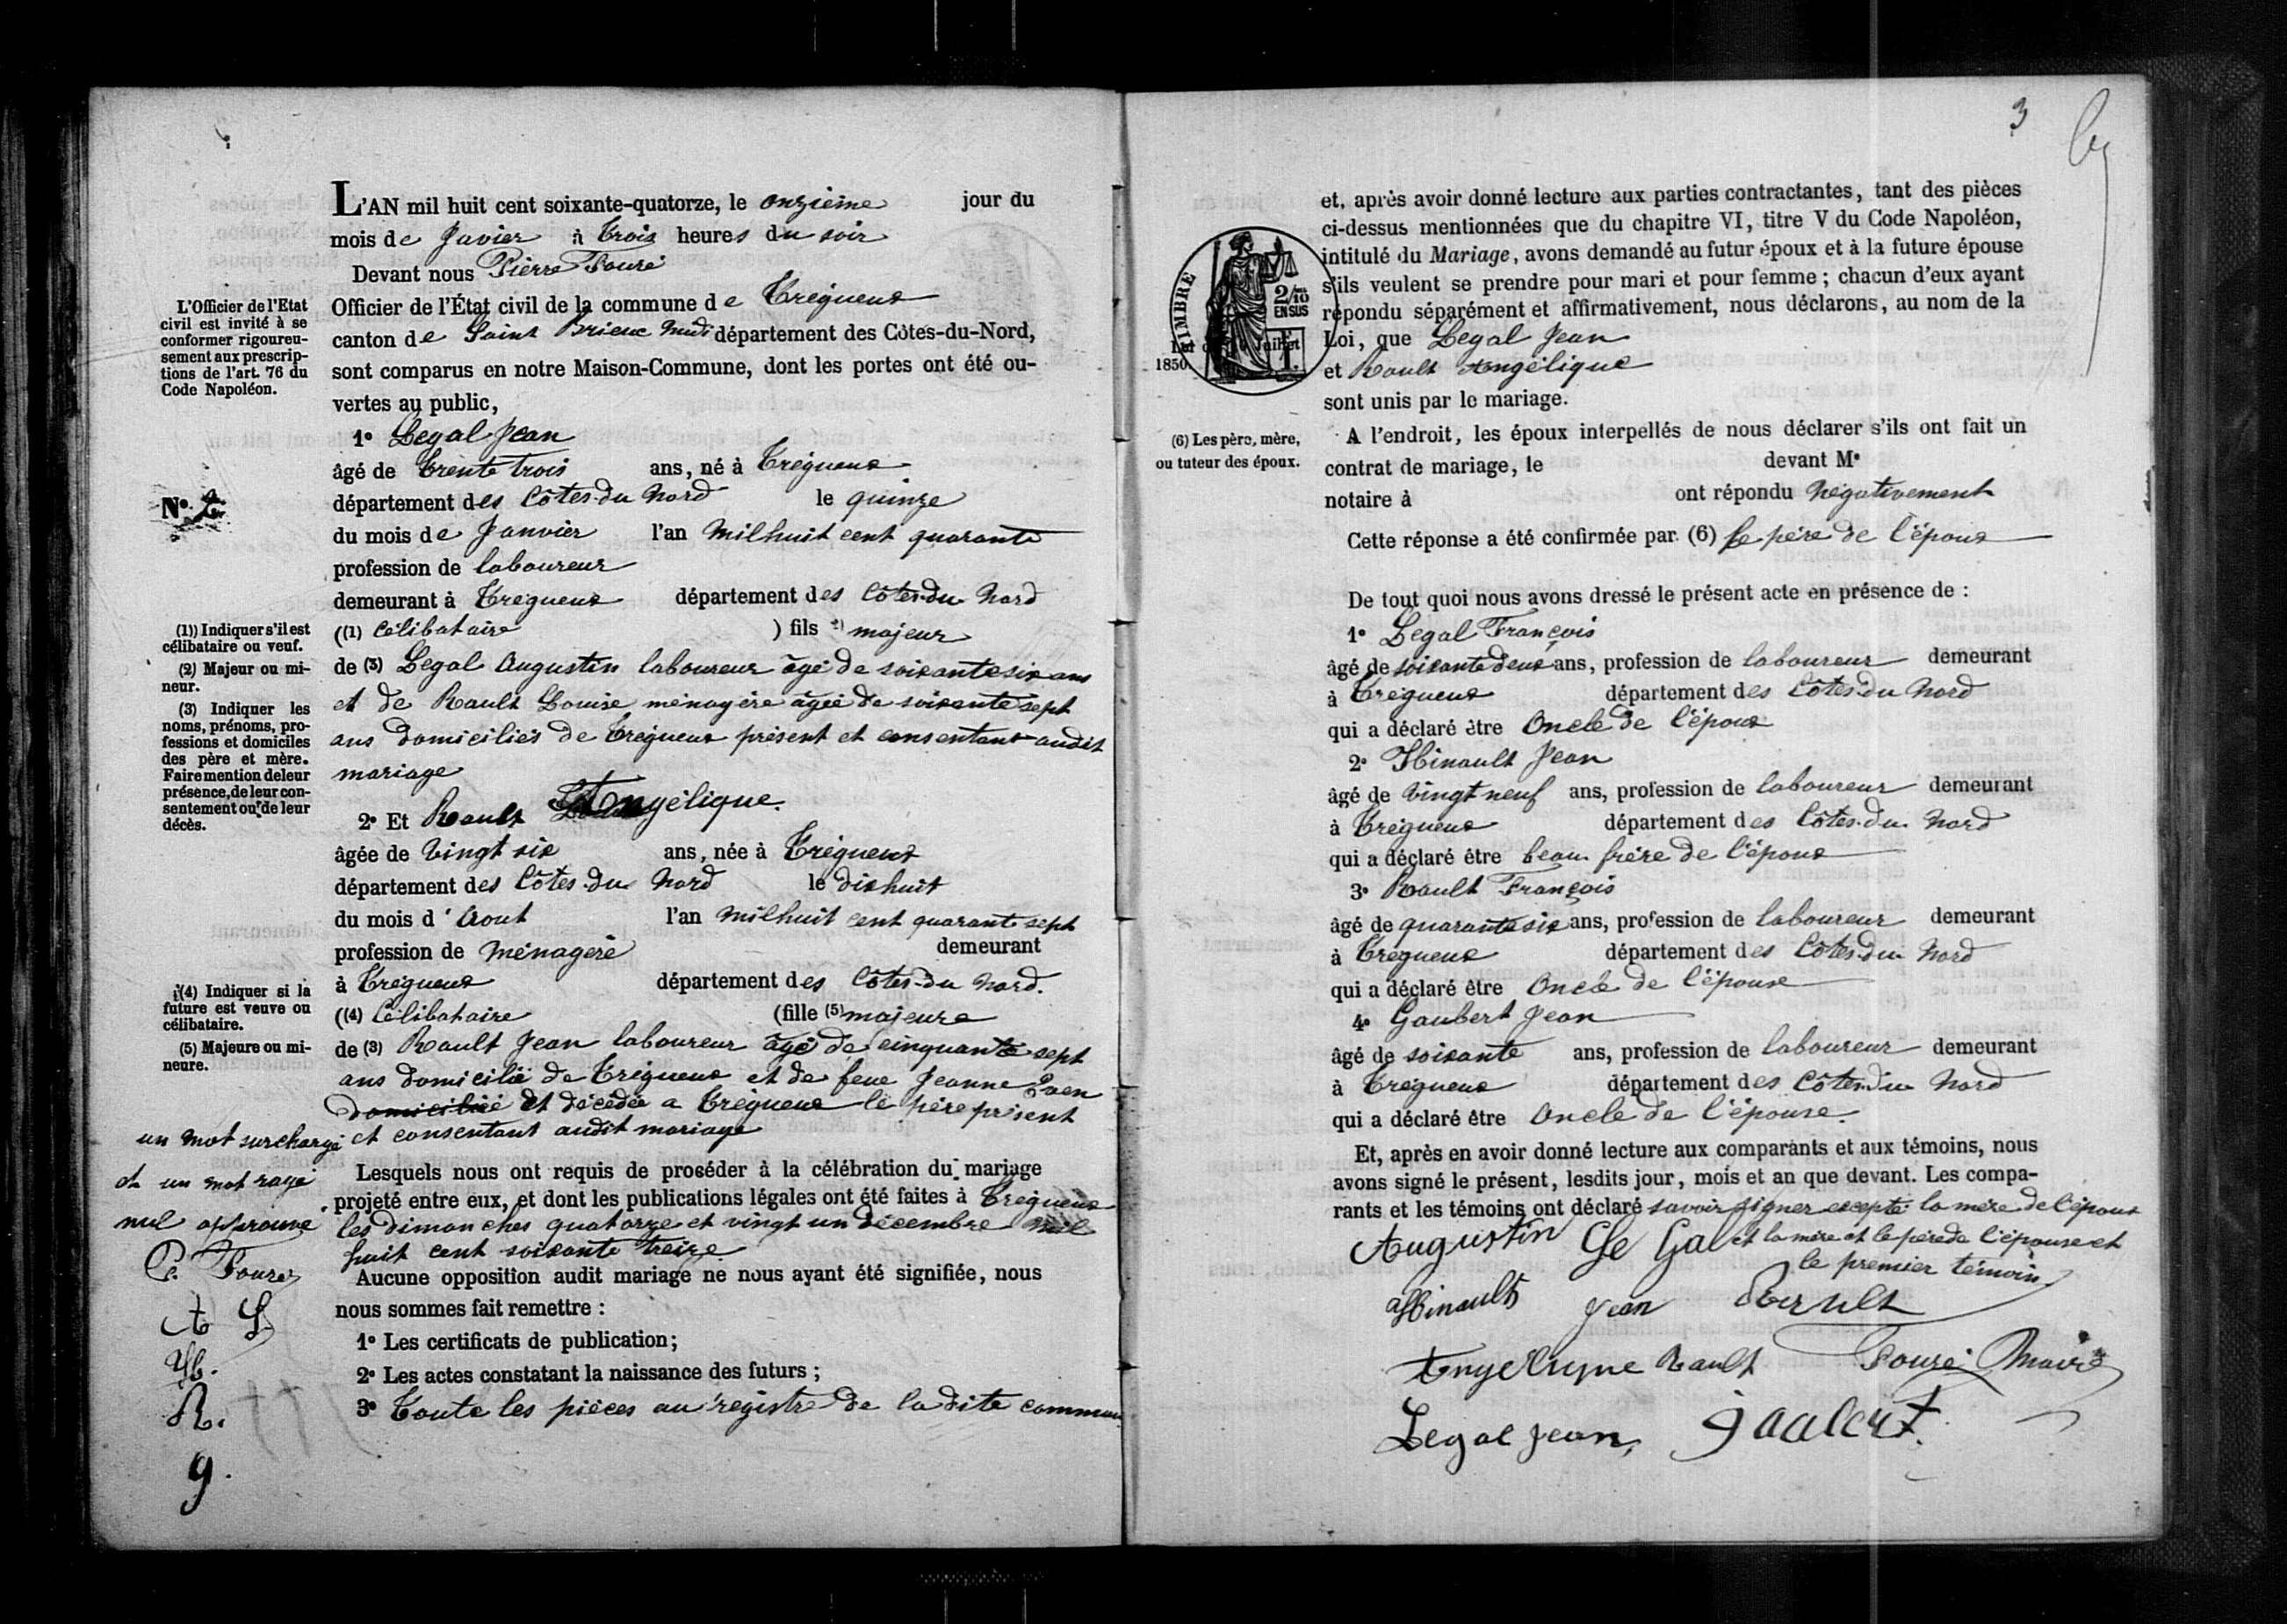 L'AN mil huit cent soixante-quatorze, le onzième jour du
mois de Javier à trois heures du soir
Devant nous Pierre Fouré
Officier de l'État civil de la commune de Tregueux
canton de Saint Brieuc midi département des Côtes-du-Nord,
sont comparus en notre Maison-Commune, dont les portes ont été ou-
vertes au public,
L'Officier de l'Etat
civil est invité à se
conformer rigoureu-
sement aux prescrip-
tions de l'art. 76 du
Code Napoléon.
1° Legal Jean
âgé de trente trois ans, né à Tregueux
N° 2
département des Côtes-du Nord le quinze
du mois de Janvier l'an Milhuit cent quarante
profession de laboureur
demeurant à Tregueux département des Côtes-du Nord
((1) Célibataire ) fils majeur
de (3) Legal Augustin laboureur âgé de soixante six ans
et de Rault Louise ménagère âgée de soixante sept
ans domiciliés de Tregueux présent et consentant audit
mariage
(1)) Indiquer s'il est
célibataire ou veuf.
(2) Majeur ou mi-
neur.
(3) Indiquer les
noms, prénoms, pro-
fessions et domiciles
des père et mère.
Faire mention de leur
présence, de leur con-
sentement ou de leur
décès.
2° Et Rault Angélique.
âgée de vingt six ans, née à Tregueux
département des Côtes-du Nord le dixhuit
du mois d'Aout l'an Milhuit cent quarante sept
profession de ménagère demeurant
à Tregueux département des Côtes-du Nord.
((4) Célibataire (fille (5) majeure
de (3) Rault Jean laboureur âgé de cinquante sept
ans domicilié de Tregueux et de feue Jeanne
domicilié et décédée a Tregueux le père présent
et consentant audit mariage
(4) Indiquer si la
future est veuve ou
célibataire.
(5) Majeure ou mi-
neure.
un mot surchargé
et un mot rayé
nul approuvé
P. Fouré
A L
H.
R.
g.
Lesquels nous ont requis de procéder à la célébration du mariage
projeté entre eux, et dont les publications légales ont été faites à Tregueux
les dimanches quatorze et vingt un décembre mil
huit cent soixante treize
Aucune opposition audit mariage ne nous ayant été signifiée, nous
nous sommes fait remettre :
1° Les certificats de publication;
2° Les actes constatant la naissance des futurs ;
3° Toute les pièces au régistre de la dite commun
3
et, après avoir donné lecture aux parties contractantes, tant des pièces
ci-dessus mentionnées que du chapitre VI, titre V du Code Napoléon,
intitulé du Mariage, avons demandé au futur époux et à la future épouse
s'ils veulent se prendre pour mari et pour femme ; chacun d'eux ayant
répondu séparément et affirmativement, nous déclarons, au nom de la
Loi, que Legal Jean
et Rault Angélique
sont unis par le mariage.
TIMBRE
2/10
EN SUS
Juillet
1850
(6) Les père, mère,
ou tuteur des époux.
A l'endroit, les époux interpellés de nous déclarer s'ils ont fait un
contrat de mariage, le devant Me
notaire à ont répondu négativement
Cette réponse a été confirmée par (6) le père de l'époux
De tout quoi nous avons dressé le présent acte en présence de :
1° Legal François
âgé de soixante deux ans, profession de laboureur demeurant
à Tregueux département des Côtes-du Nord
qui a déclaré être Oncle de l'époux
2° Hinault Jean
âgé de vingt neuf ans, profession de laboureur demeurant
à Tregueux département des Côtes-du Nord
qui a déclaré être beau frère de l'époux
3° Rault François
âgé de quarante six ans, profession de laboureur demeurant
à Tregueux département des Côtes-du Nord
qui a déclaré être Oncle de l'épouse
4° Gaubert Jean
âgé de soixante ans, profession de laboureur demeurant
à Tregueux département des Côtes-du Nord
qui a déclaré être Oncle de l'épouse.
Et, après en avoir donné lecture aux comparants et aux témoins, nous
avons signé le présent, lesdits jour, mois et an que devant. Les compa-
rants et les témoins ont déclaré savoir signer excepté la mère de l'époux
et la mère et le père de l'épouse et
le premier témoin
Augustin Le Gal
Hinault Jean
Angelique Rault Fouré Maire
Legal Jean